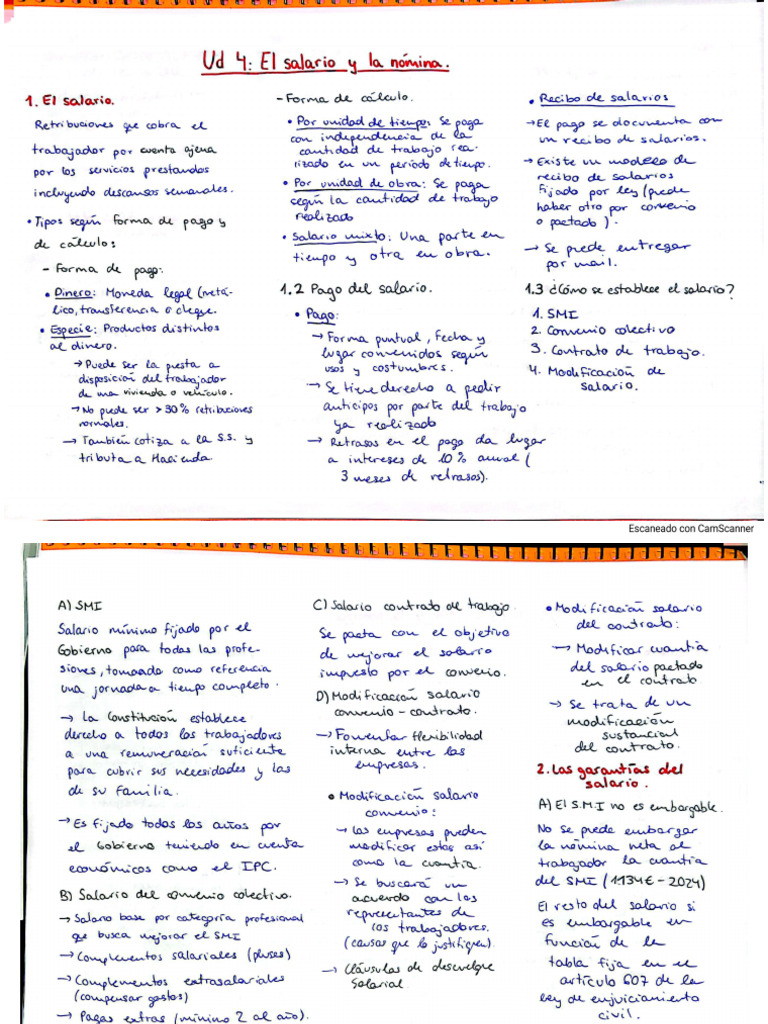 Ud 4: El salario y la nómina.
1. El salario.
Retribuciones que cobra el
trabajador por cuenta ajena
por los servicios prestandos
incluyendo descansos semanales.
• Tipos según forma de pago y
de cálculo:
- Forma de pago:
• Dinero: Moneda legal (metá-
lico, transferencia o cheque.
• Especie: Productos distintos
al dinero.
→ Puede ser la puesta a
disposición del trabajador
de una vivienda o vehículo.
→ No puede ser >30% retribuciones
normales.
→ También cotiza a la S.S. y
tributa a Hacienda.
- Forma de cálculo.
• Por unidad de tiempo: Se paga
con independencia de la
cantidad de trabajo rea-
lizado en un período de tiempo.
• Por unidad de obra: Se paga
según la cantidad de trabajo
realizado
• Salario mixto: Una parte en
tiempo y otra en obra.
1.2 Pago del salario.
• Pago:
→ Forma puntual, fecha y
lugar convenidos según
usos y costumbres.
→ Se tiene derecho a pedir
anticipos por parte del trabajo
ya realizado
→ Retrasos en el pago da lugar
a intereses de 10% anual (
3 meses de retrasos).
• Recibo de salarios
→ El pago se documenta con
un recibo de salarios.
→ Existe un modelo de
recibo de salarios
fijado por ley (puede
haber otro por convenio
o pactado).
→ Se puede entregar
por mail.
1.3 ¿Cómo se establece el salario?
1. SMI
2. Convenio colectivo
3. Contrato de trabajo.
4. Modificación de
salario.
Escaneado con CamScanner
A) SMI
Salario mínimo fijado por el
Gobierno para todas las profe-
siones, tomando como referencia
una jornada a tiempo completo.
→ La Constitución establece
derecho a todos los trabajadores
a una remuneración suficiente
para cubrir sus necesidades y las
de su familia.
→ Es fijado todos los años por
el Gobierno teniendo en cuenta
económicos como el IPC.
B) Salario del convenio colectivo.
→ Salario base por categoría profesional
que busca mejorar el SMI
→ Complementos salariales (pluses)
→ Complementos extrasalariales
(compensar gastos)
→ Pagas extras (mínimo 2 al año).
C) Salario contrato de trabajo
Se pacta con el objetivo
de mejorar el salario
impuesto por el convenio.
D) Modificación salario
convenio - contrato.
→ Fomentar flexibilidad
interna entre las
empresas.
• Modificación salario
convenio:
→ Las empresas pueden
modificar estos así
como la cuantía.
→ Se buscará un
acuerdo con los
representantes de
los trabajadores.
(causas que lo justifiquen).
→ Cláusulas de descuelgue
salarial
• Modificación salario
del contrato:
→ Modificar cuantía
del salario pactado
en el contrato
→ Se trata de un
modificación
sustancial
del contrato.
2. Las garantías del
salario.
A) El S.M.I no es embargable.
No se puede embargar
la nómina neta al
trabajador la cuantía
del SMI (1134€ - 2024)
El resto del salario si
es embargable en
función de la
tabla fija en el
artículo 607 de la
ley de enjuiciamiento
civil.